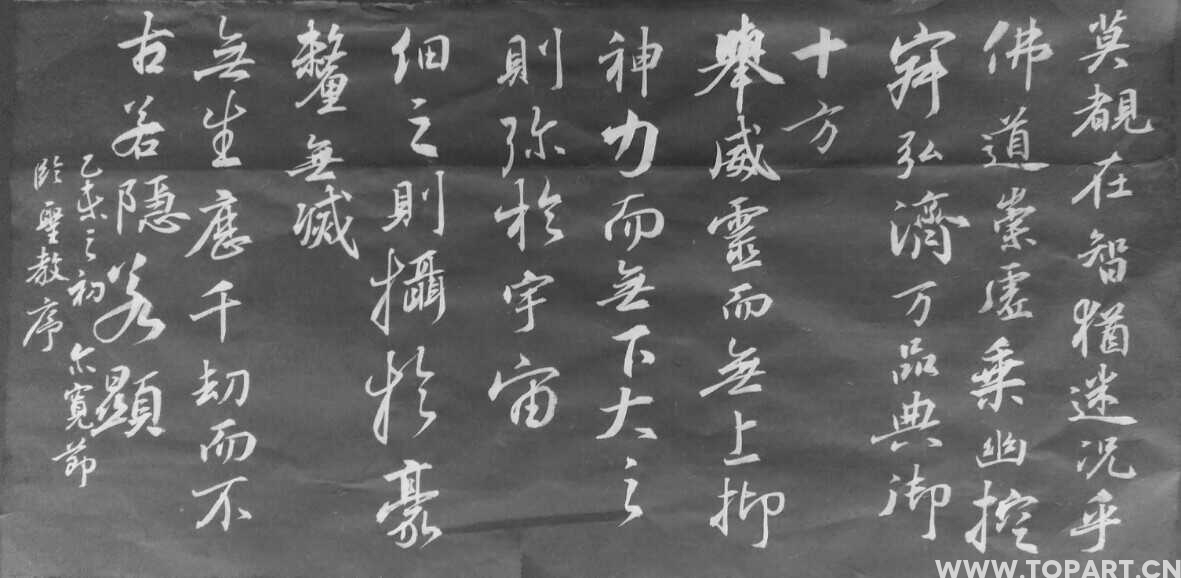 莫覩在智猶迷况乎
佛道崇虛乘幽控
寂弘濟万品典御
十方
舉威靈而無上抑
神力而無下大之
則弥於宇宙
細之則攝於豪
釐無滅
無生應千劫而不
古若隱若顯
乙未之初 尔寬節
臨聖教序
WWW.TOPART.CN